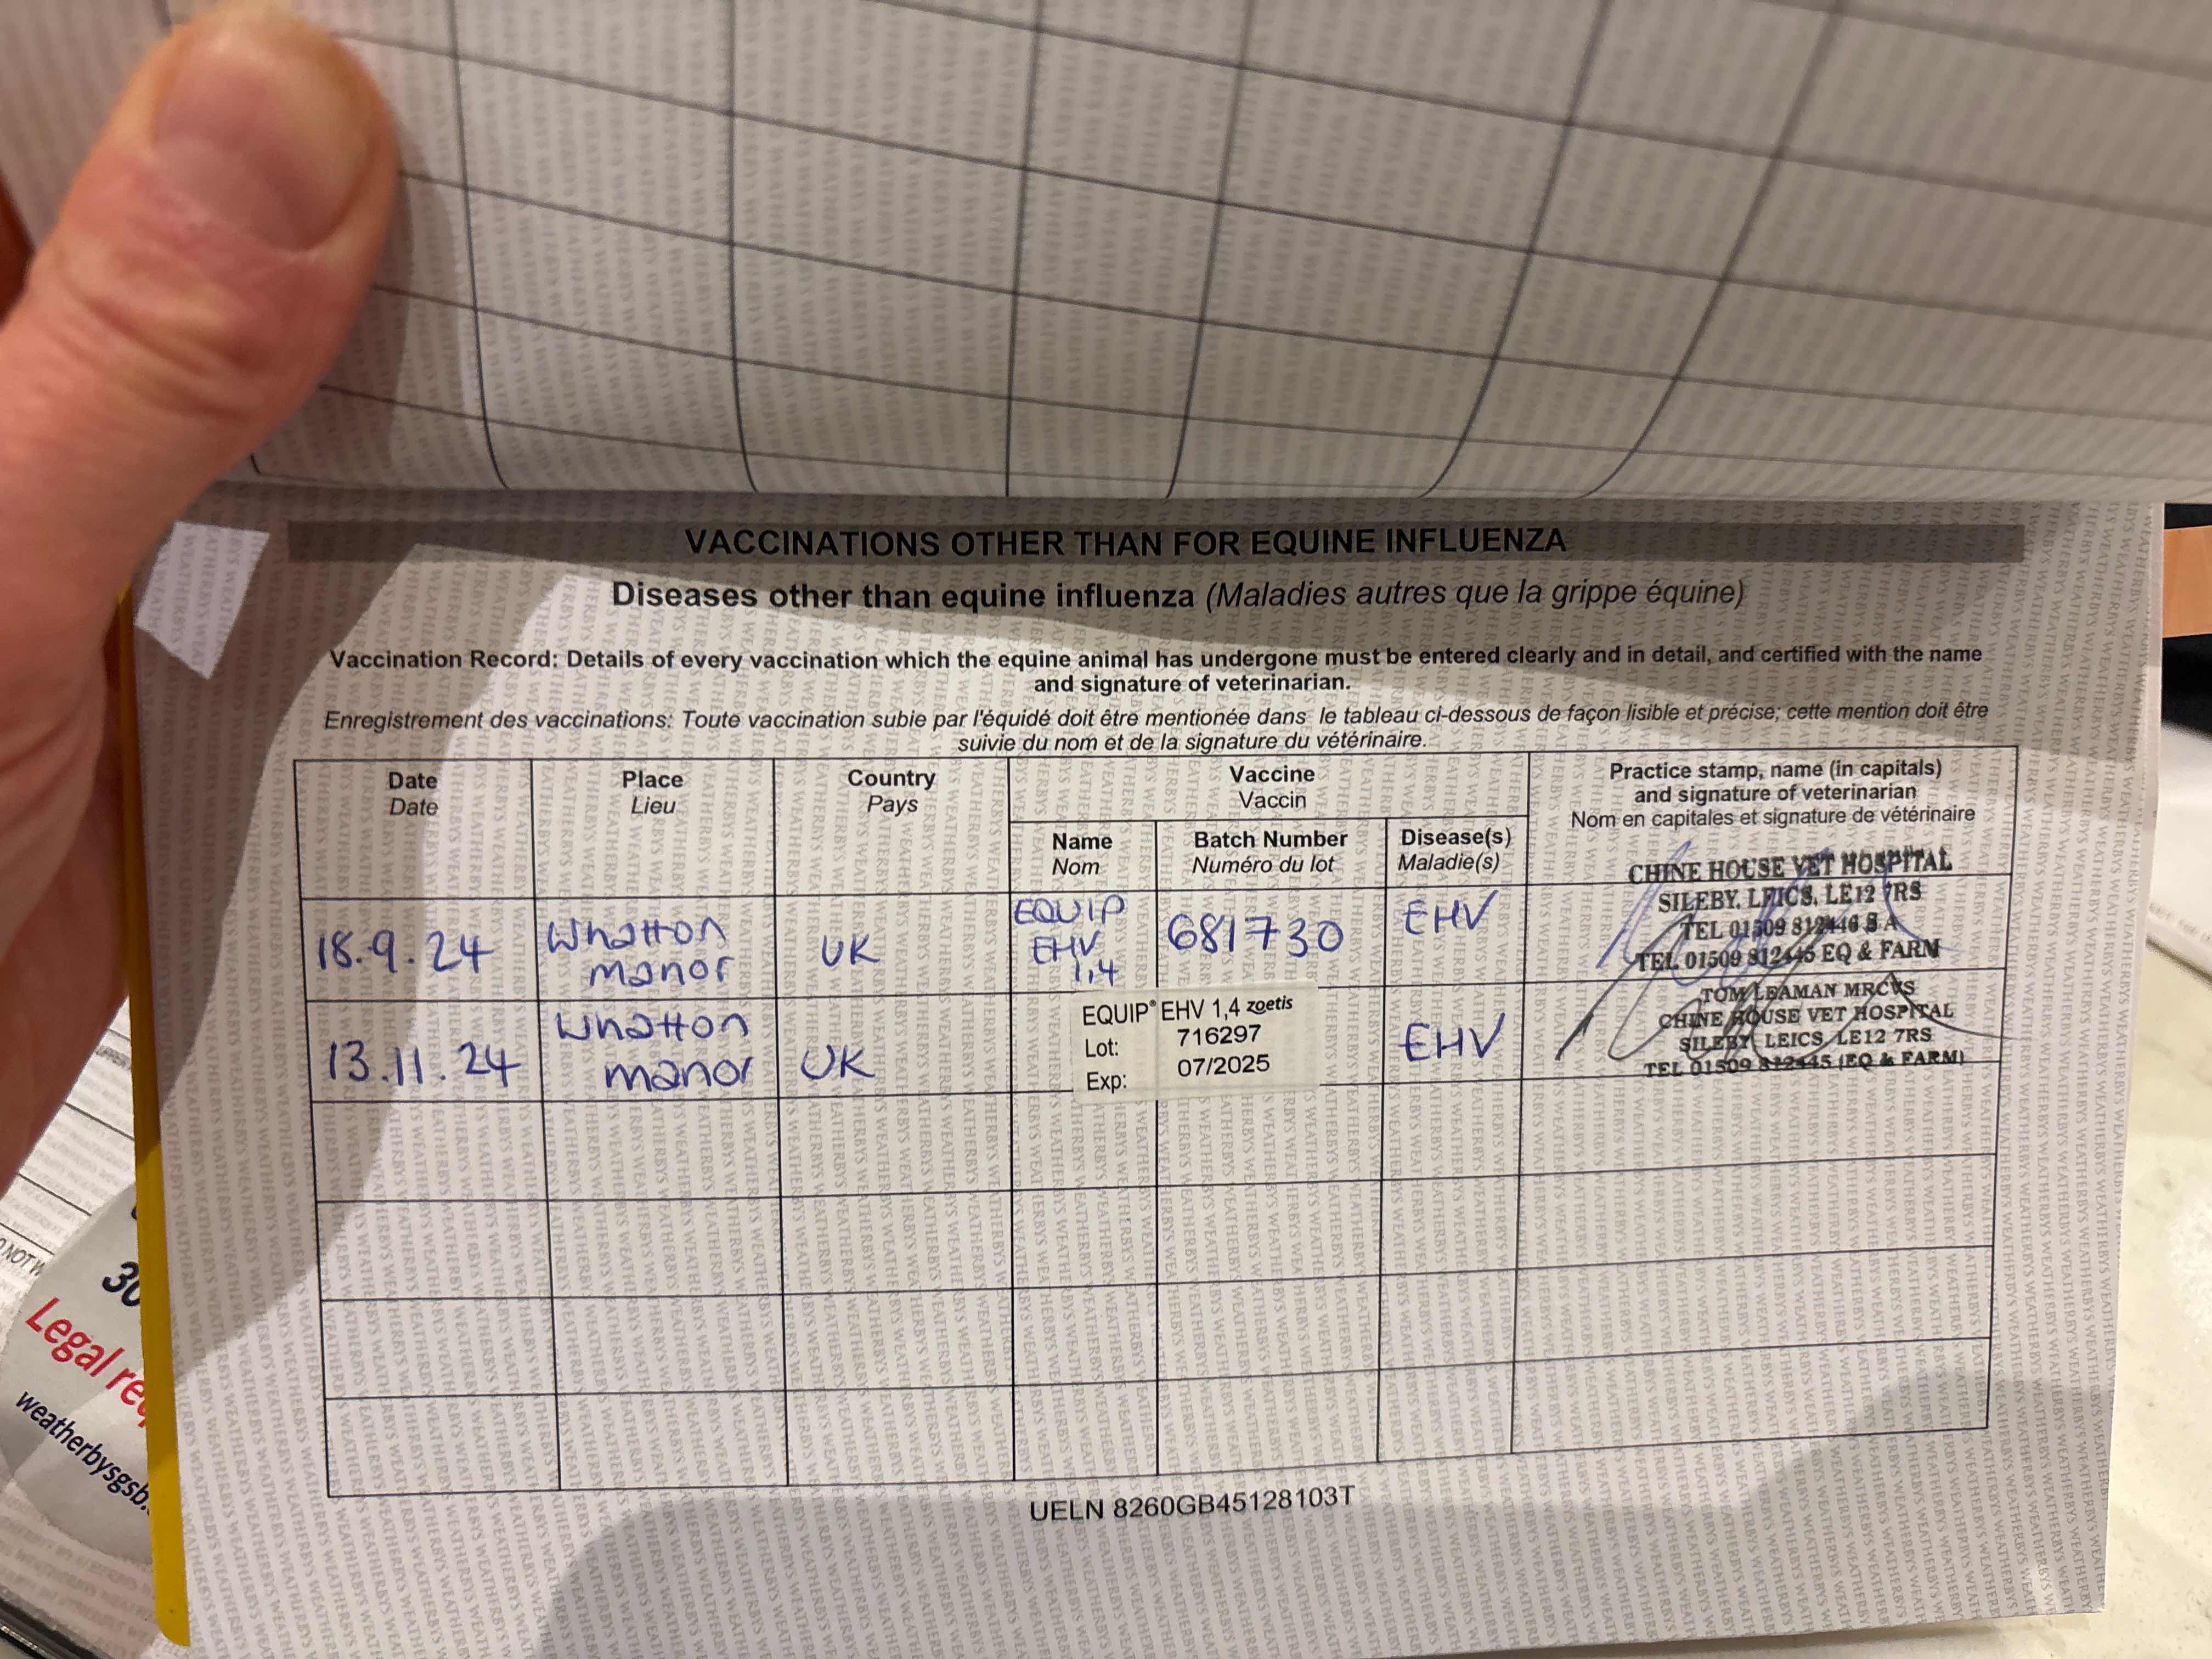 VACCINATIONS OTHER THAN FOR EQUINE INFLUENZA
Diseases other than equine influenza (Maladies autres que la grippe équine)
Vaccination Record: Details of every vaccination which the equine animal has undergone must be entered clearly and in detail, and certified with the name
and signature of veterinarian.
Enregistrement des vaccinations: Toute vaccination subie par l'équidé doit être mentionée dans le tableau ci-dessous de façon lisible et précise; cette mention doit être
suivie du nom et de la signature du vétérinaire.
Date
Date
Place
Lieu
Country
Pays
Vaccine
Vaccin
Name
Nom
Batch Number
Numéro du lot
Disease(s)
Maladie(s)
Practice stamp, name (in capitals)
and signature of veterinarian
Nom en capitales et signature de vétérinaire
18.9.24
Whatton
manor
UK
EQUIP
EHV
1,4
681730
EHV
CHINE HOUSE VET HOSPITAL
SILEBY, LEICS, LE12 7RS
TEL 01509 812446 S A
TEL 01509 812445 EQ & FARM
13.11.24
Whatton
manor
UK
EQUIP® EHV 1,4 zoetis
Lot: 716297
Exp: 07/2025
EHV
TOM LEAMAN MRCVS
CHINE HOUSE VET HOSPITAL
SILEBY LEICS LE12 7RS
TEL 01509 812445 (EQ & FARM)
UELN 8260GB45128103T
30
Legal
weatherbysgsb.